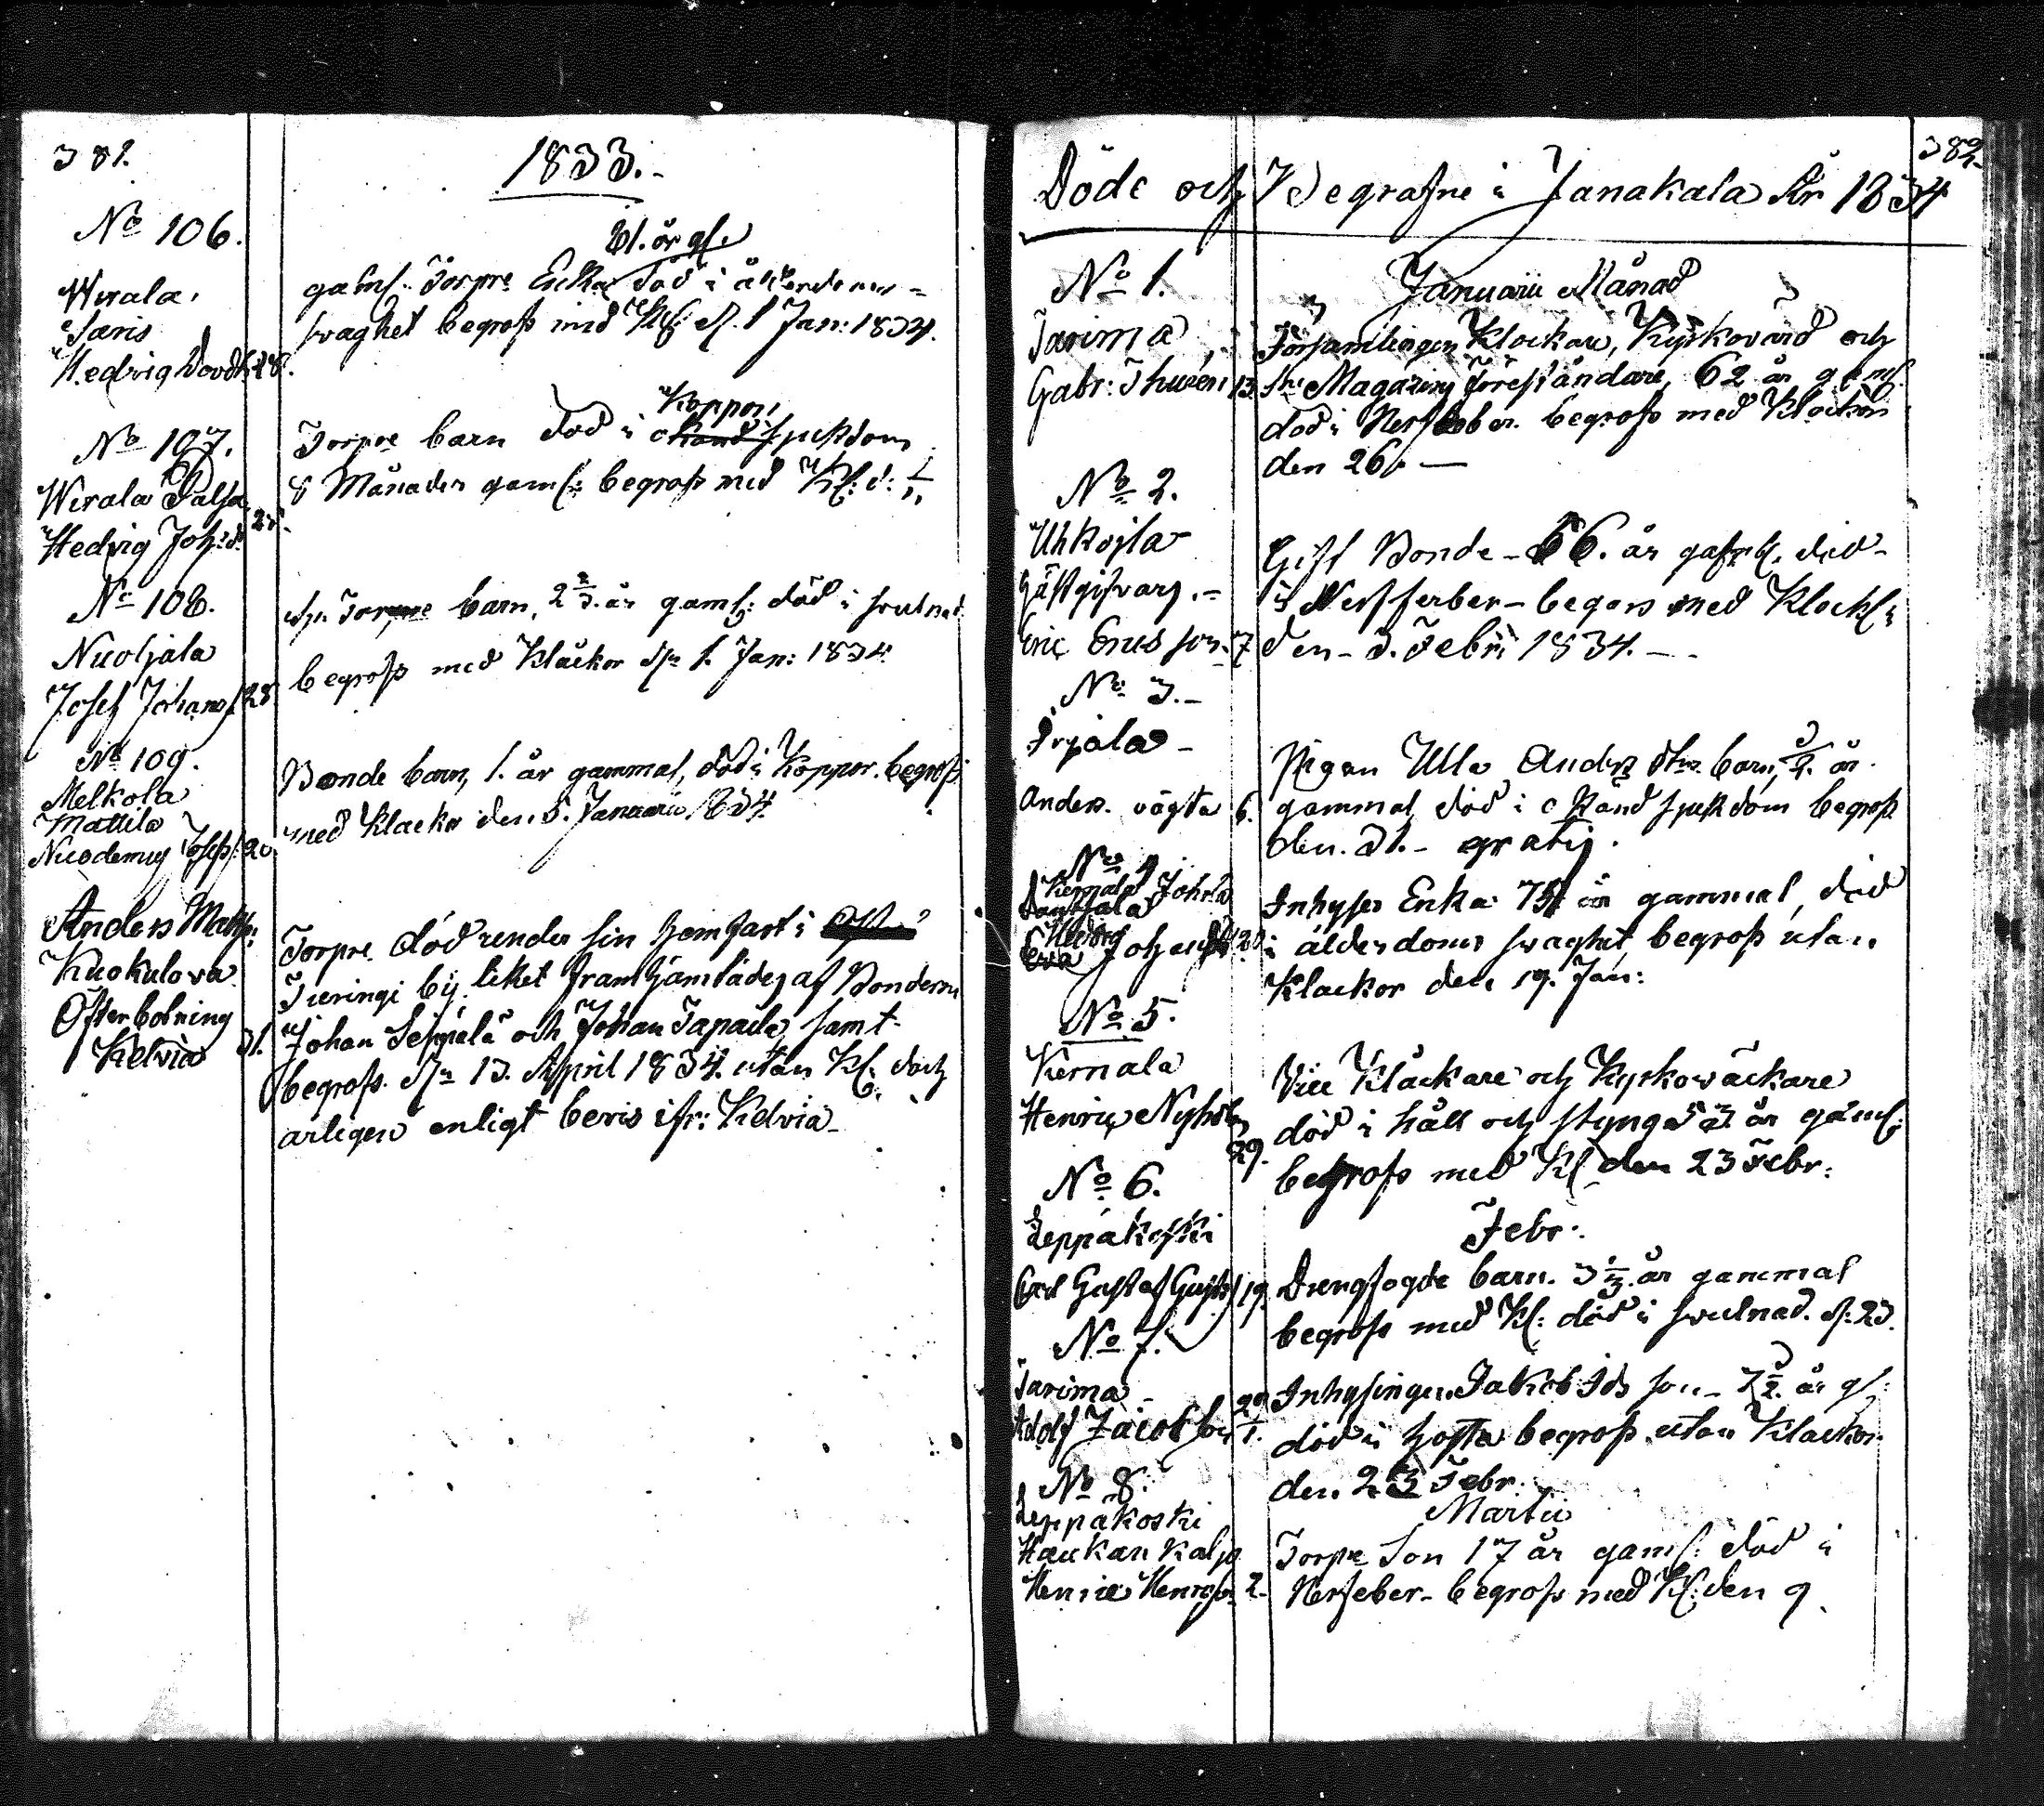 381.
1833.
No 106.
Wirala
Saris
Hedvig Davidsd: 28.
81. år gl.
gaml. Torpre Enka död i ålderdoms-
svaghet begrofs med Kl: d. 1 Jan: 1834.
No 107.
Wirala
Hedvig Joh:d. 28.
Torpre barn död i okänd Koppor sjukdom
8 Månader gaml: begrofs med Kl: d:
No 108.
Nuoljala
Josef Johans 28
Torpre barn, 2 2/3. år gaml: död i svulnad
begrofs med Klåckor d. 1. Jan: 1834.
No 109.
Melkola
Mattila
Nicodemus Josefs: 20
Bonde barn, 1. år gammal, död i Koppor. begrofs
med Klockor den 5. Januarii 1834.
Anders Matts:
Kuokalova
Österbotning
Kelvia 31.
Torpre död under sin hemfart i
Turingi by. liket framskjämtades af Bönderne
Johan Seppälä och Johan Tapaila, samt
begrofs. d. 13. April 1834. utan Kl: dock
ärligen enligt bevis ifr: Kelvia
382
Döde och Begrafne i Janakala År 1834
Januarii Månad
No 1.
Tarima
Gabr: Thurén 13.
Församlingens Klockare, Kyrkovärd och
Magazins Föreståndare, 62 år gaml.
död i Nerffeber. begrofs med Klockor
den 26.
No 2.
Uhkoila
Gästgifvars.
Eric Ericsson 7
Gift Bonde - 56. år gaml. död
i Nerffeber - begrofs med Klock:
den - 3. Febr: 1834.
No 3.
Irjala
Anders. vägta 6.
Pigan Ulla Anders dtrs. barn, 3/4. år
gammal, död i okänd sjukdom begrofs
den. 31. - gratis.
No 4
Kernala Johola
Hedvig
Eva Johansd:
Inhyses Enka 75 år gammal, död
i ålderdoms svaghet, begrofs utan
Klockor den 19. Jan:
No 5.
Kernala
Henric Nyholm 29.
Vice Klåckare och Kyrkoväckare
död i håll och styng år gaml:
begrofs med Kl: den 23 Febr:
Febr:
No 6.
Leppäkoski
Carl Gustaf Gusts: 19.
Drengfogde barn. 3 1/3. år gammal
begrofs med Kl: död i svulnad. d: 23.
No 7.
Tarima
Adolf Jacobson
Inhysingen Jakob Ids son - 7 år gl:
död i hosta begrofs utan Klockor
den 23 Febr:
Martii
No 8.
Leppäkoski
Haukankalio
Henric Henricss: 2.
Torpre Son 17 år gaml: död i
Nerffeber - begrofs med Kl: den 9.